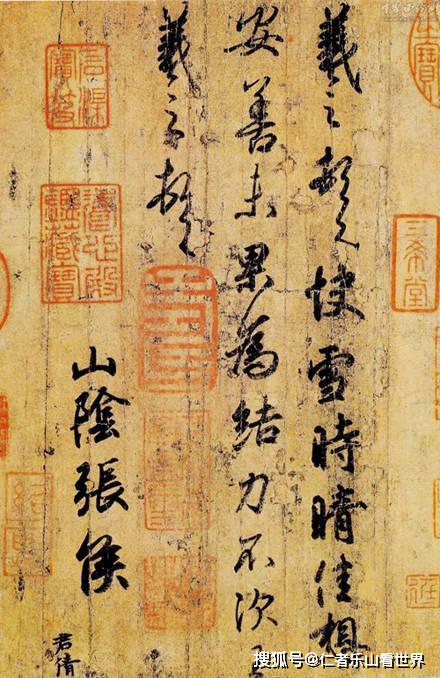 羲之頓首快雪時晴佳想
安善未果為結力不次
羲之頓首
山陰張侯
君倩
三希堂
石渠寶笈
養心殿鑑藏寶
搜狐号@仁者乐山看世界